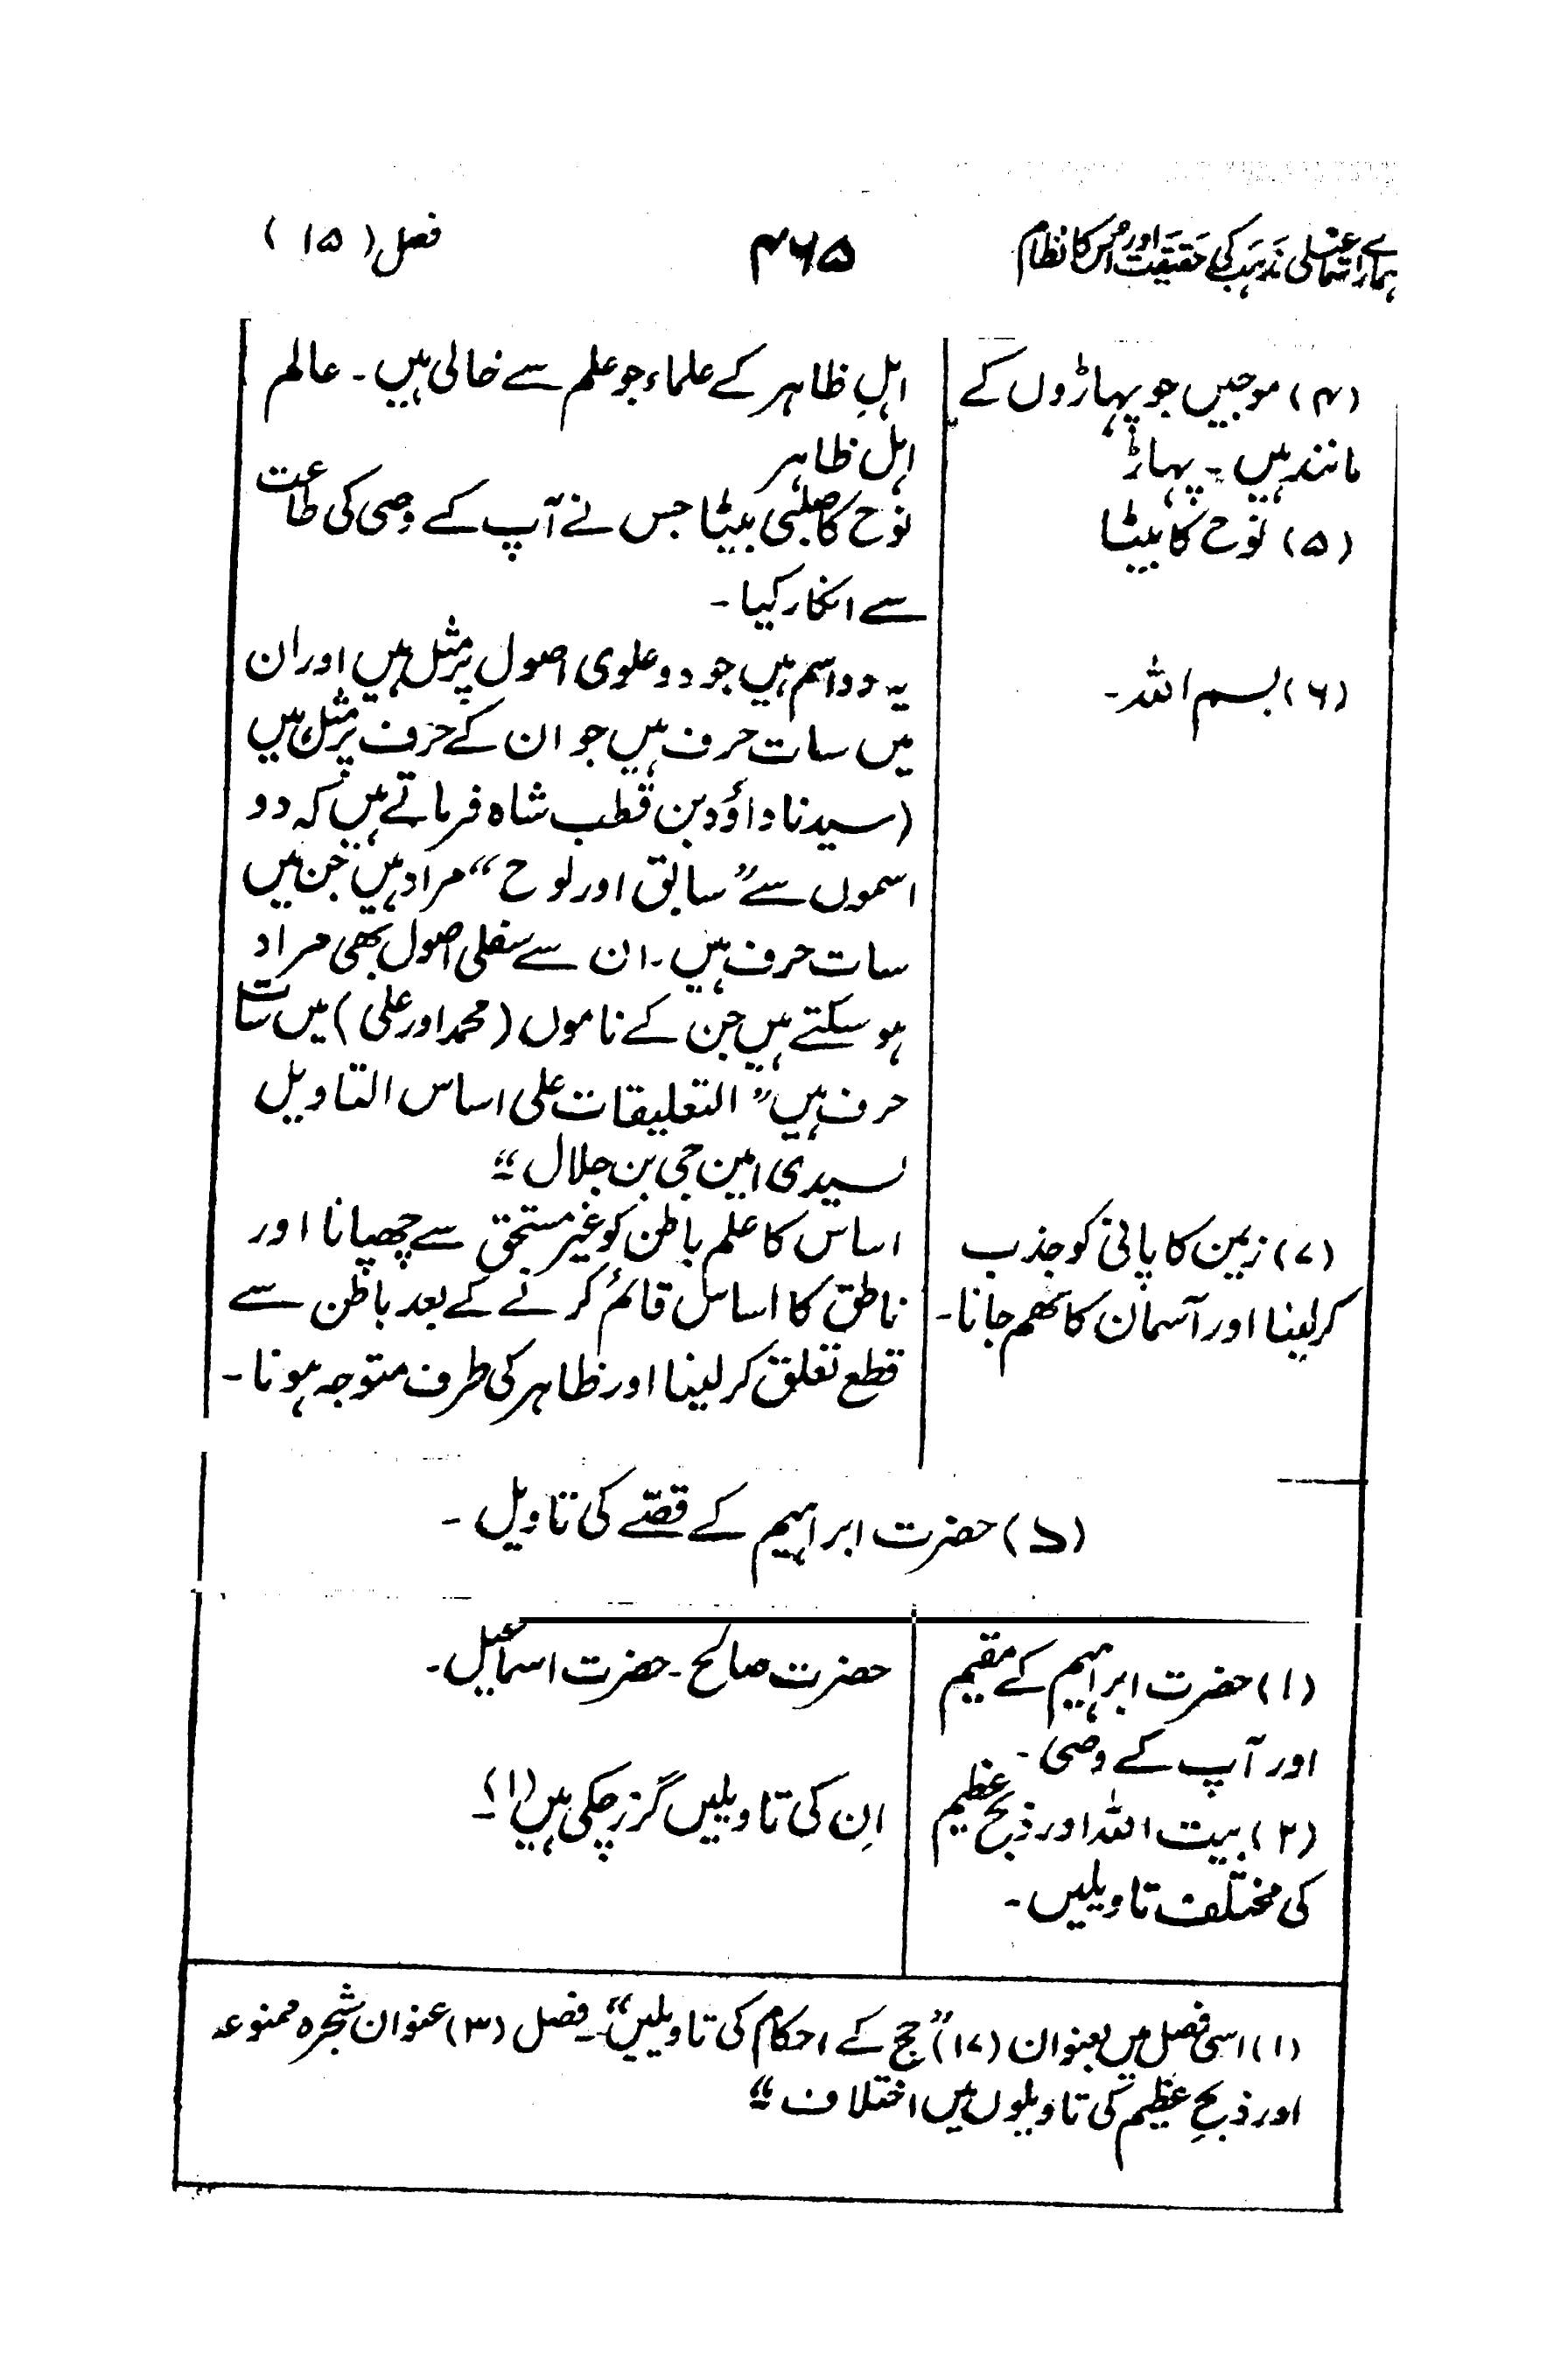 ہمارے اسماعیلی مذہب کی حقیقت اور اس کا نظام
۴۶۵
فصل (۱۵)
(۴) موجیں جو پہاڑوں کے
مانند ہیں ۔ پہاڑ
اہلِ ظاہر کے علماء جو علم سے خالی ہیں ۔ عالم
اہل ظاہر
(۵) نوح کا بیٹا
نوح کا صلبی بیٹا جس نے آپ کے وصی کی طاعت
سے انکار کیا ۔
(۶) بسم اللہ ۔
یہ دو اسم ہیں جو دو علوی اصول پر مثل ہیں اور ان
میں سات حرف ہیں جو ان کے حرف پر مثل ہیں
(سیدنا داؤد بن قطب شاہ فرماتے ہیں کہ دو
اسموں سے ”سابق اور لوح“ مراد ہیں جن میں
سات حرف ہیں ۔ ان سے سفلی اصول بھی مراد
ہو سکتے ہیں جن کے ناموں (محمد اور علی) میں سات
حرف ہیں ”التعلیقات علی اساس التاویل
لسیدی امین جی بن جلال“
(۷) زمین کا پانی کو جذب
کر لینا اور آسمان کا تھم جانا ۔
اساس کا علم باطن کو غیر مستحق سے چھپانا اور
ناطق کا اساس قائم کرنے کے بعد باطن سے
قطع تعلق کر لینا اور ظاہر کی طرف متوجہ ہونا ۔
(د) حضرت ابراہیم کے قصّے کی تاویل ۔
(۱) حضرت ابراہیم کے مقیم
اور آپ کے وصی ۔
حضرت صالح ۔ حضرت اسماعیل ۔
(۲) بیت اللہ اور ذبح عظیم
کی مختلف تاویلیں ۔
اِن کی تاویلیں گزر چکی ہیں (۱) ۔
(۱) اسی فصل میں بعنوان (۱۷) ”حج کے احکام کی تاویلیں“ ۔ فصل (۳) عنوان شجرہ ممنوعہ
اور ذبحِ عظیم کی تاویلوں میں اختلاف“